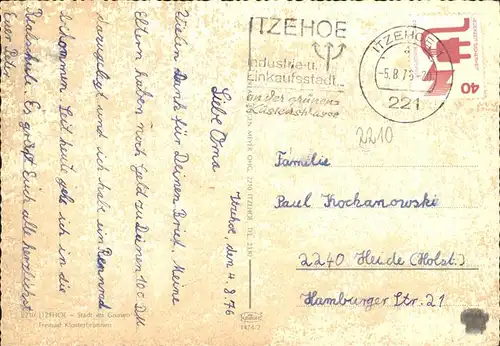 ITZEHOE
Industrie-u.
Einkaufsstadt
an der grünen
Küstenstrasse
ITZEHOE
-5.8.76-
221
40
2210
Liebe Oma
Itzehoe, den 4.8.76
Vielen Dank für Deinen Brief. Meine
Eltern haben noch Geld zu Deinen 100 DM
dazugelegt und ich habe ein Rennrad
bekommen. Seit heute gehe ich in die
Realschule. Es grüßt Euch alle herzlichst
Euer
Familie
Paul Kochanowski
2240 Heide (Holst.)
Hamburger Str. 21
2210 ITZEHOE - Stadt im Grünen
Freibad Klosterbrunnen
MEYER OHG, 2210 ITZEHOE, TEL. 2130
1474/2